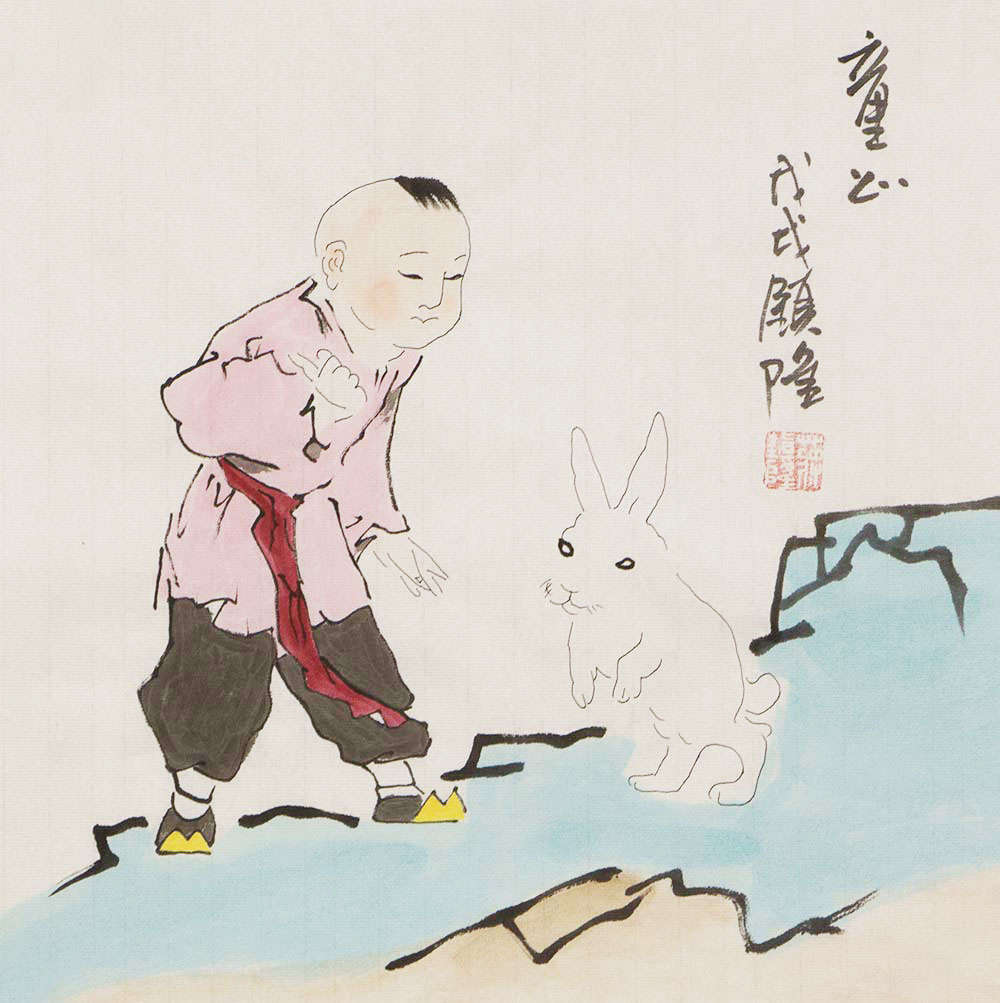 童心
戊戌鎮隆